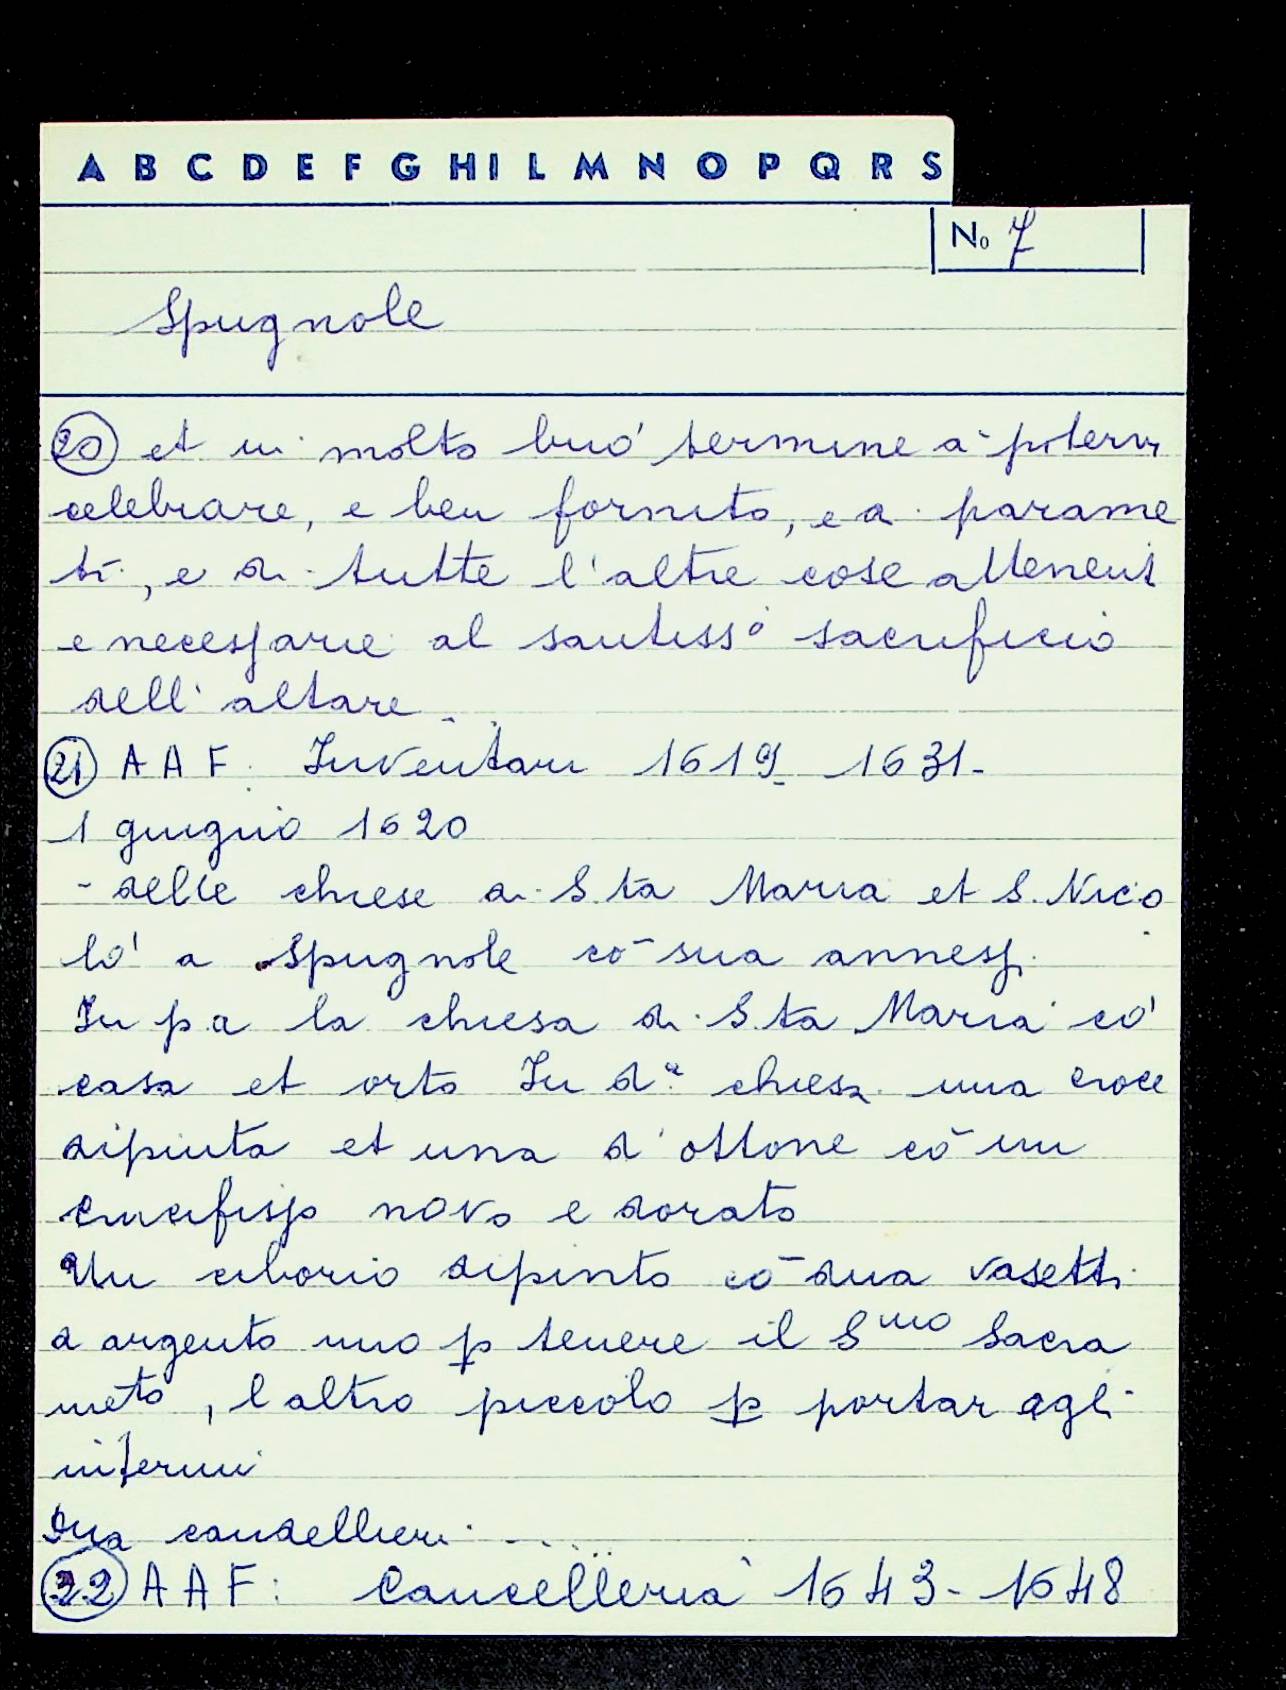 A B C D E F G H I L M N O P Q R S
No 7
Spugnole
20 et in molto buō termine a potervi
celebrare, e ben fornito, e a parame
ti, e di tutte l'altre cose attenenti
e necessarie al santiss° sacrificio
dell'altare ...
21 A A F. Inventari 1619 - 1631 -
1 giugnio 1620
- delle chiese di S. ta Maria et S. Nico
lo' a Spugnole cō sua anness.
In p.a la chiesa di S. ta Maria cō
casa et orto In d.a chiesa una croce
dipinta et una d'ottone cō un
crucifisso novo e dorato
Un ciborio dipinto cō dua vasetti
d argento uno p tenere il Smo Sacra
mēto, l altro piccolo p portar agli
infermi
Dua candellieri ...
22 A A F: Cancelleria 1643 - 1648